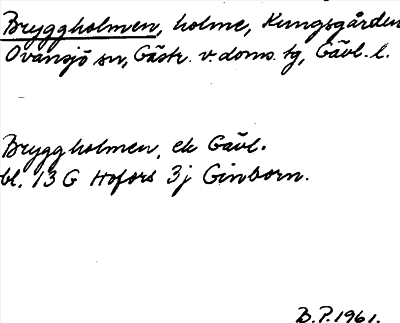 Bryggholmen, holme, Kungsgården
Ovansjö sn, Gästr. v. doms. tg, Gävl. l.
Bryggholmen, ek Gävl.
bl. 13 G Hofors 3j Ginborn.
B.P. 1961.